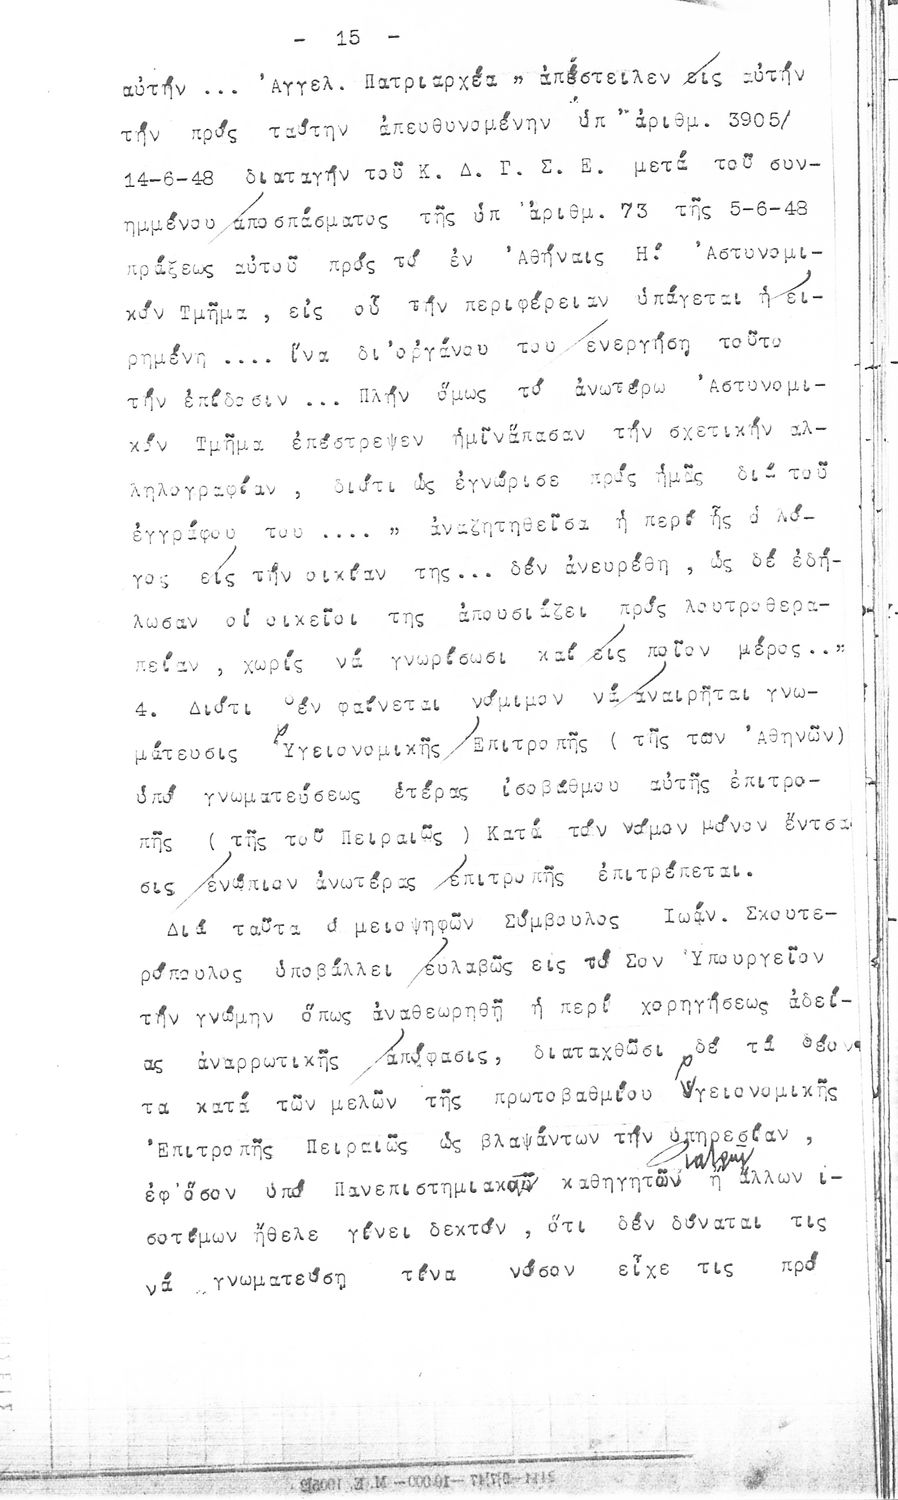 - 15 -
αὐτήν ... 'Αγγελ. Πατριαρχέα " ἀπέστειλεν εἰς αὐτήν
τήν πρός ταύτην ἀπευθυνομένην ὑπ' ἀριθμ. 3905/
14-6-48 διαταγήν τοῦ Κ. Δ. Γ. Σ. Ε. μετά τοῦ συν-
ημμένου ἀποσπάσματος τῆς ὑπ 'ἀριθμ. 73 τῆς 5-6-48
πράξεως αὐτοῦ πρός τό ἐν 'Αθήναις Η! 'Αστυνομι-
κόν Τμῆμα , εἰς οὗ τήν περιφέρειαν ὑπάγεται ἡ ει-
ρημένη .... ἵνα δι'ὀργάνου του ἐνεργήση τοῦτο
τήν ἐπίδοσιν ... Πλήν ὅμως τό ἀνωτέρω 'Αστυνομι-
κόν Τμῆμα ἐπέστρεψεν ἡμῖνἅπασαν τήν σχετικήν αλ-
ληλογραφίαν , διότι ὡς ἐγνώρισε πρός ἡμᾶς διά τοῦ
ἐγγράφου του .... " ἀναζητηθεῖσα ἡ περί ἧς ὁ λό-
γος εἰς τήν οικίαν της... δέν ἀνευρέθη , ὡς δέ ἐδή-
λωσαν οἱ οικεῖοι της ἀπουσιάζει πρός λουτροθερα-
πείαν , χωρίς νά γνωρίσωσι καί εἰς ποῖον μέρος.."
4. Διότι δέν φαίνεται νόμιμον νά ἀναιρῆται γνω-
μάτευσις Ὑγειονομικῆς Ἐπιτροπῆς ( τῆς των 'Αθηνῶν)
ὑπό γνωματεύσεως ἑτέρας ἰσοβάθμου αὐτῆς ἐπιτρο-
πῆς ( τῆς τοῦ Πειραιῶς ) Κατά τόν νόμον μόνον ἔντσα
σις ἐνώπιον ἀνωτέρας ἐπιτροπῆς ἐπιτρέπεται.
Διά ταῦτα ὁ μειοψηφῶν Σύμβουλος Ιωάν. Σκουτε-
ρόπουλος ὑποβάλλει εὐλαβῶς εις τό Σον Ὑπουργεῖον
τήν γνώμην ὅπως ἀναθεωρηθῆ ἡ περί χορηγήσεως ἀδεί-
ας ἀναρρωτικῆς ἀπόφασις, διαταχθῶσι δέ τά δέον
τα κατά τῶν μελῶν τῆς πρωτοβαθμίου Ὑγειονομικῆς
'Επιτροπῆς Πειραιῶς ὡς βλαψάντων τήν ὑπηρεσίαν ,
ἐφ'ὅσον ὑπό Πανεπιστημιακῶν καθηγητῶν ἰατρῶν ἤ ἄλλων ι-
σοτίμων ἤθελε γίνει δεκτόν , ὅτι δέν δύναται τις
νά γνωματεύση τίνα νόσον εἶχε τις πρό